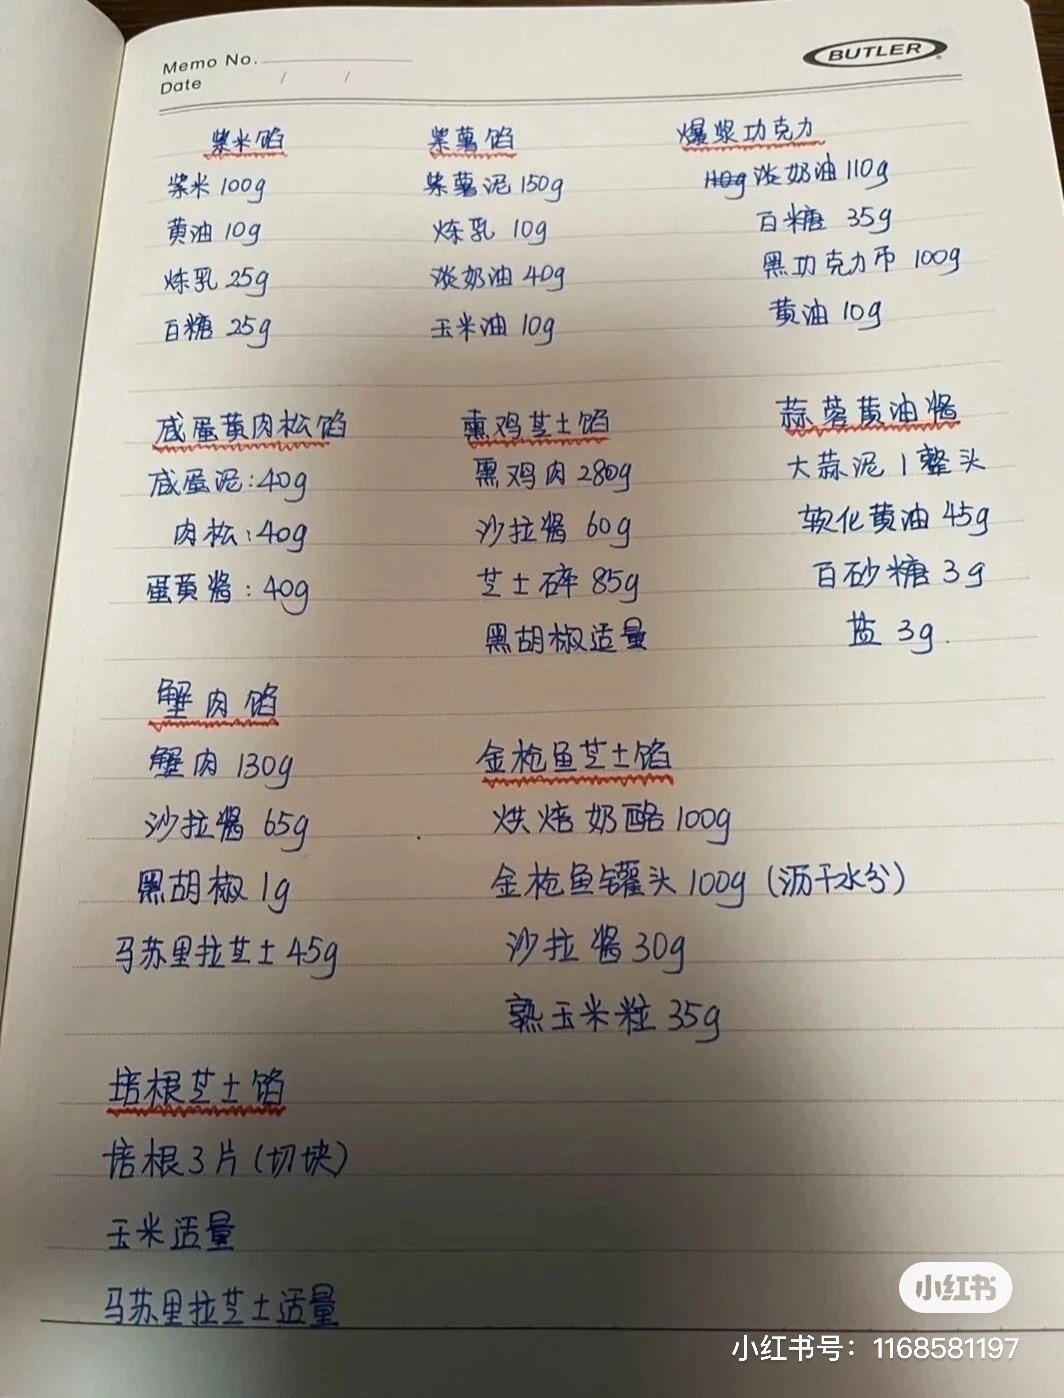 Memo No.
Date / /
BUTLER
紫米馅
紫米 100g
黄油 10g
炼乳 25g
白糖 25g
紫薯馅
紫薯泥 150g
炼乳 10g
淡奶油 40g
玉米油 10g
爆浆功克力
110g 淡奶油 110g
白糖 35g
黑功克力币 100g
黄油 10g
咸蛋黄肉松馅
咸蛋泥:40g
肉松:40g
蛋黄酱:40g
熏鸡芝士馅
熏鸡肉 280g
沙拉酱 60g
芝士碎 85g
黑胡椒适量
蒜蓉黄油酱
大蒜泥 1整头
软化黄油 45g
白砂糖 3g
盐 3g.
蟹肉馅
蟹肉 130g
沙拉酱 65g
黑胡椒 1g
马苏里拉芝士 45g
金枪鱼芝士馅
烘焙奶酪 100g
金枪鱼罐头 100g (沥干水分)
沙拉酱 30g
熟玉米粒 35g
培根芝士馅
培根3片(切块)
玉米适量
马苏里拉芝士适量
小红书
小红书号：1168581197